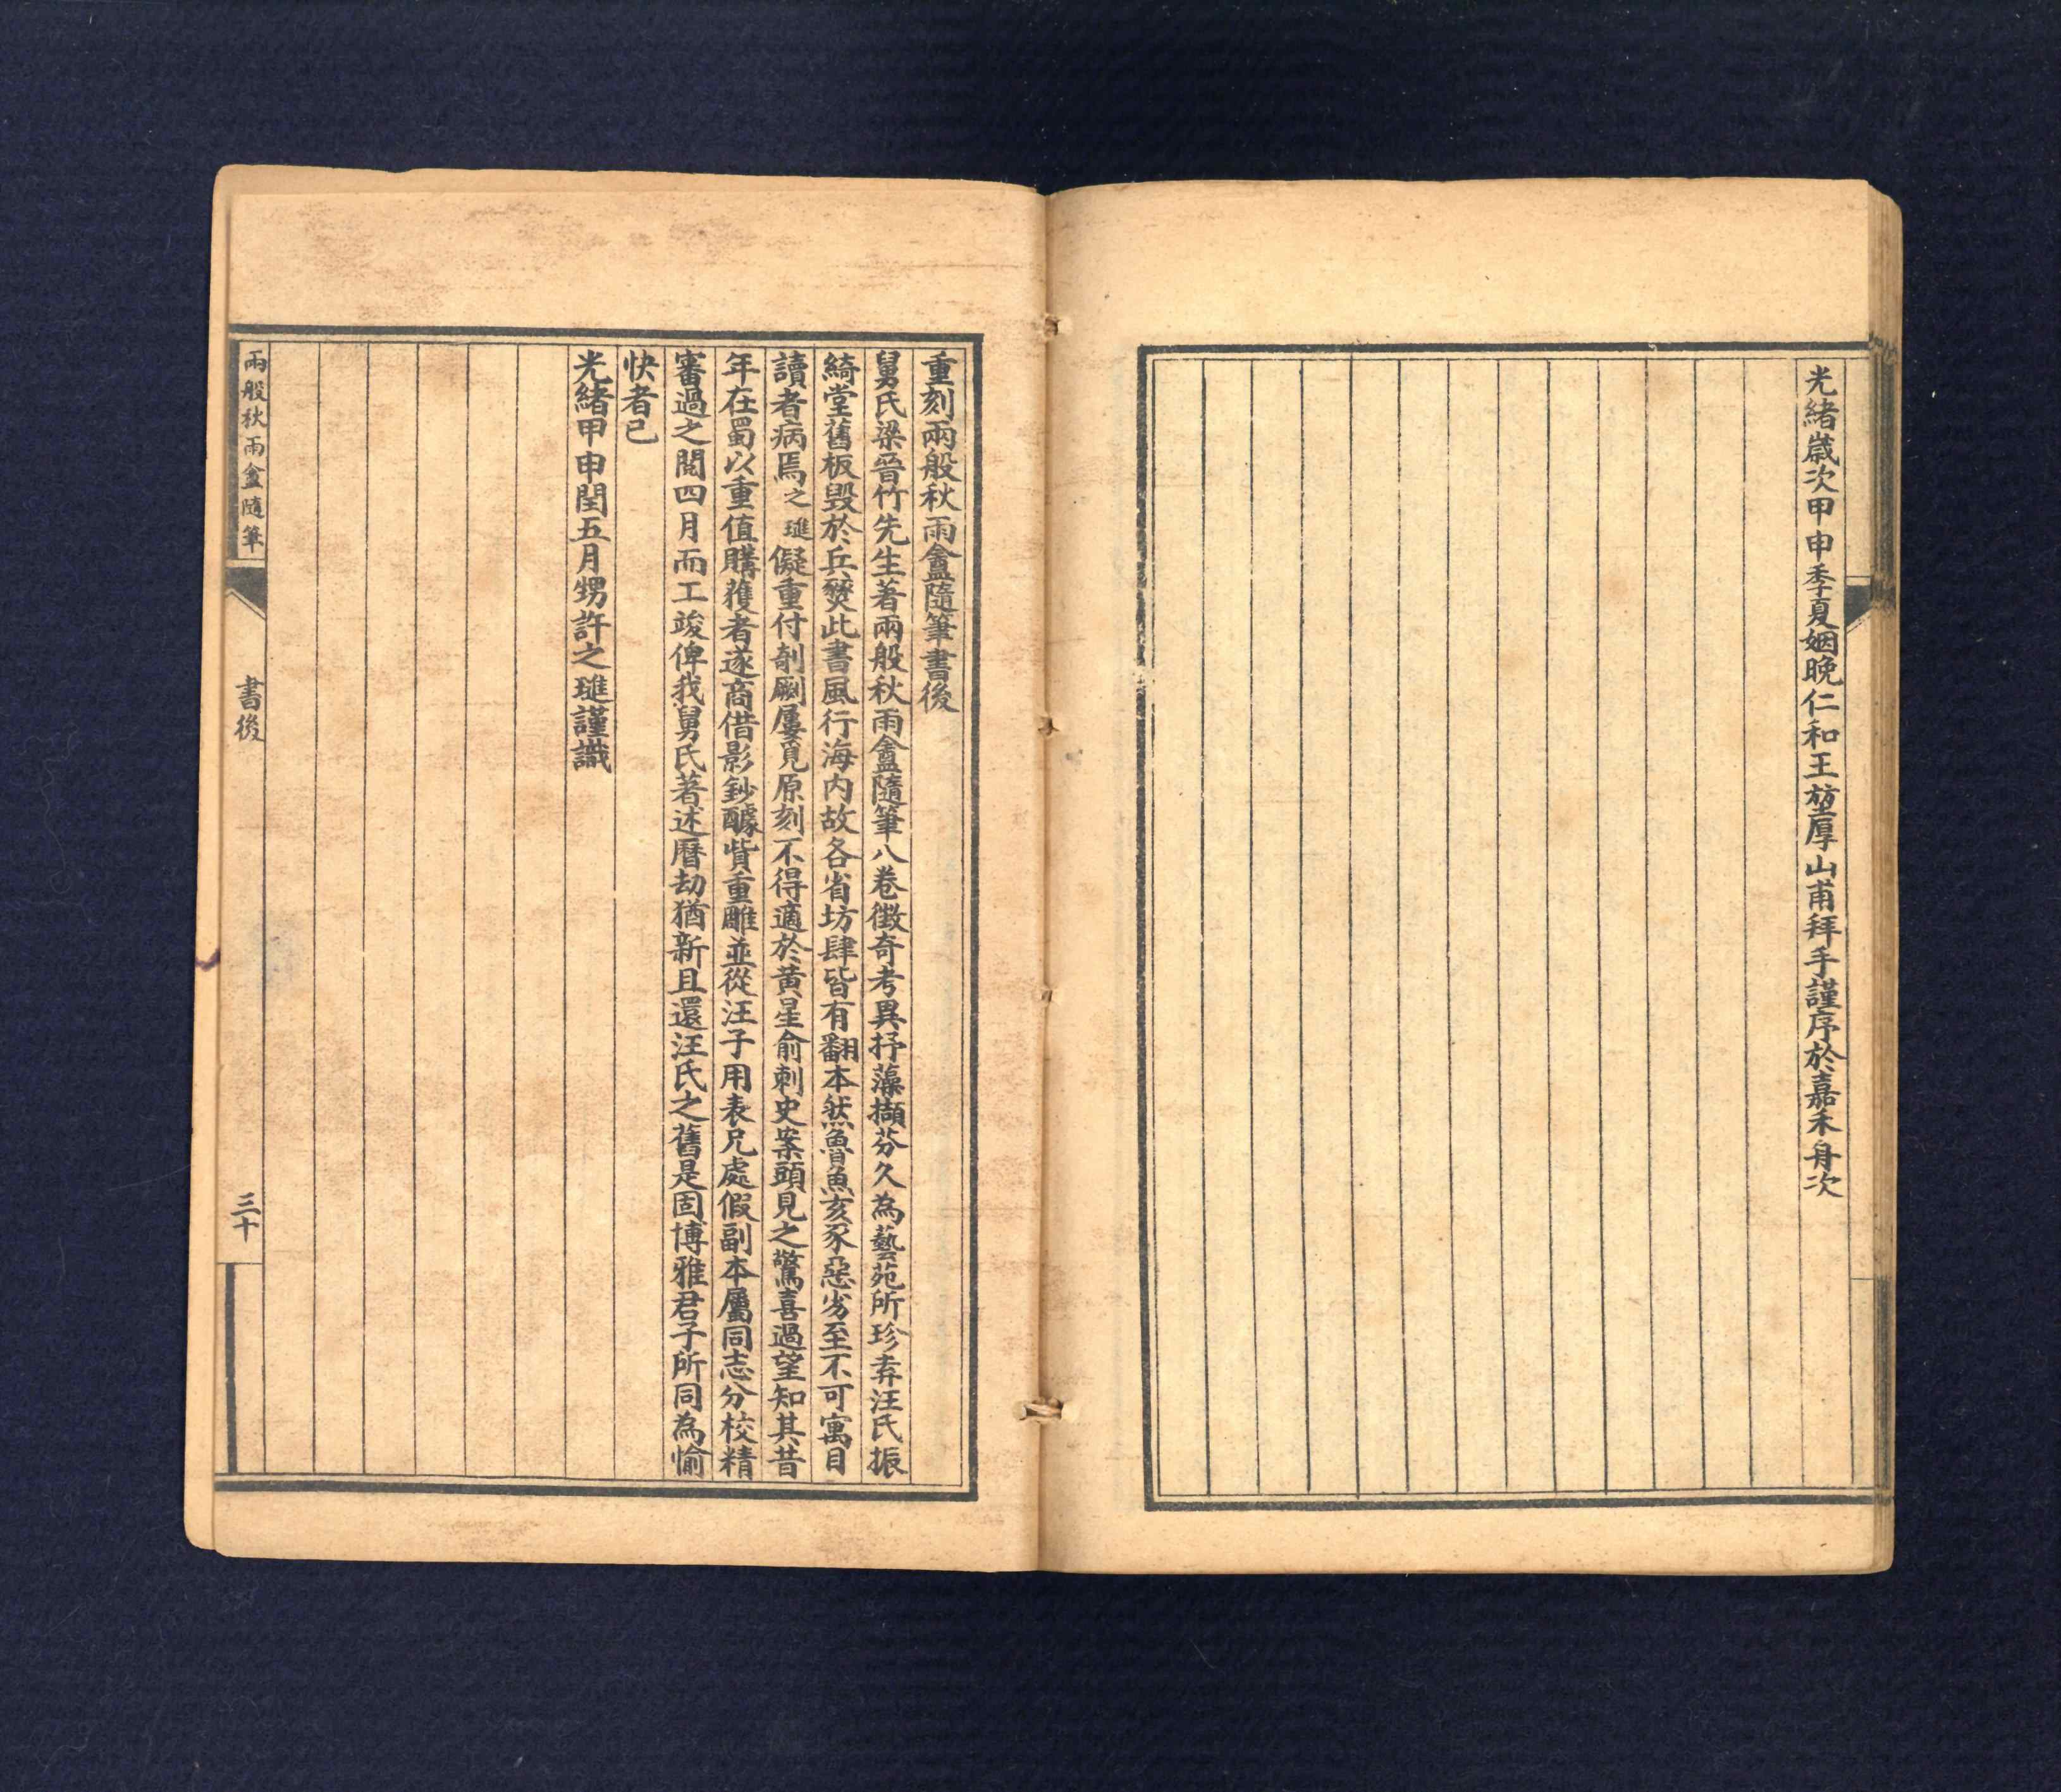 光緒歲次甲申季夏姻晚仁和王堃厚山甫拜手謹序於嘉禾舟次
重刻兩般秋雨盦隨筆書後
舅氏梁晉竹先生著兩般秋雨盦隨筆八卷徵奇考異抒藻擷芬久為藝苑所珍弆汪氏振
綺堂舊板毀於兵燹此書風行海內故各省坊肆皆有翻本然魯魚亥豕惡劣至不可寓目
讀者病焉之璡儗重付剞劂屢覓原刻不得適於黃星俞刺史案頭見之驚喜過望知其昔
年在蜀以重值購獲者遂商借影鈔醵貲重雕並從汪子用表兄處假副本屬同志分校精
審過之閱四月而工竣俾我舅氏著述曆劫猶新且還汪氏之舊是固博雅君子所同為愉
快者已
光緒甲申閏五月甥許之璡謹識
兩般秋雨盦隨筆
書後
三十